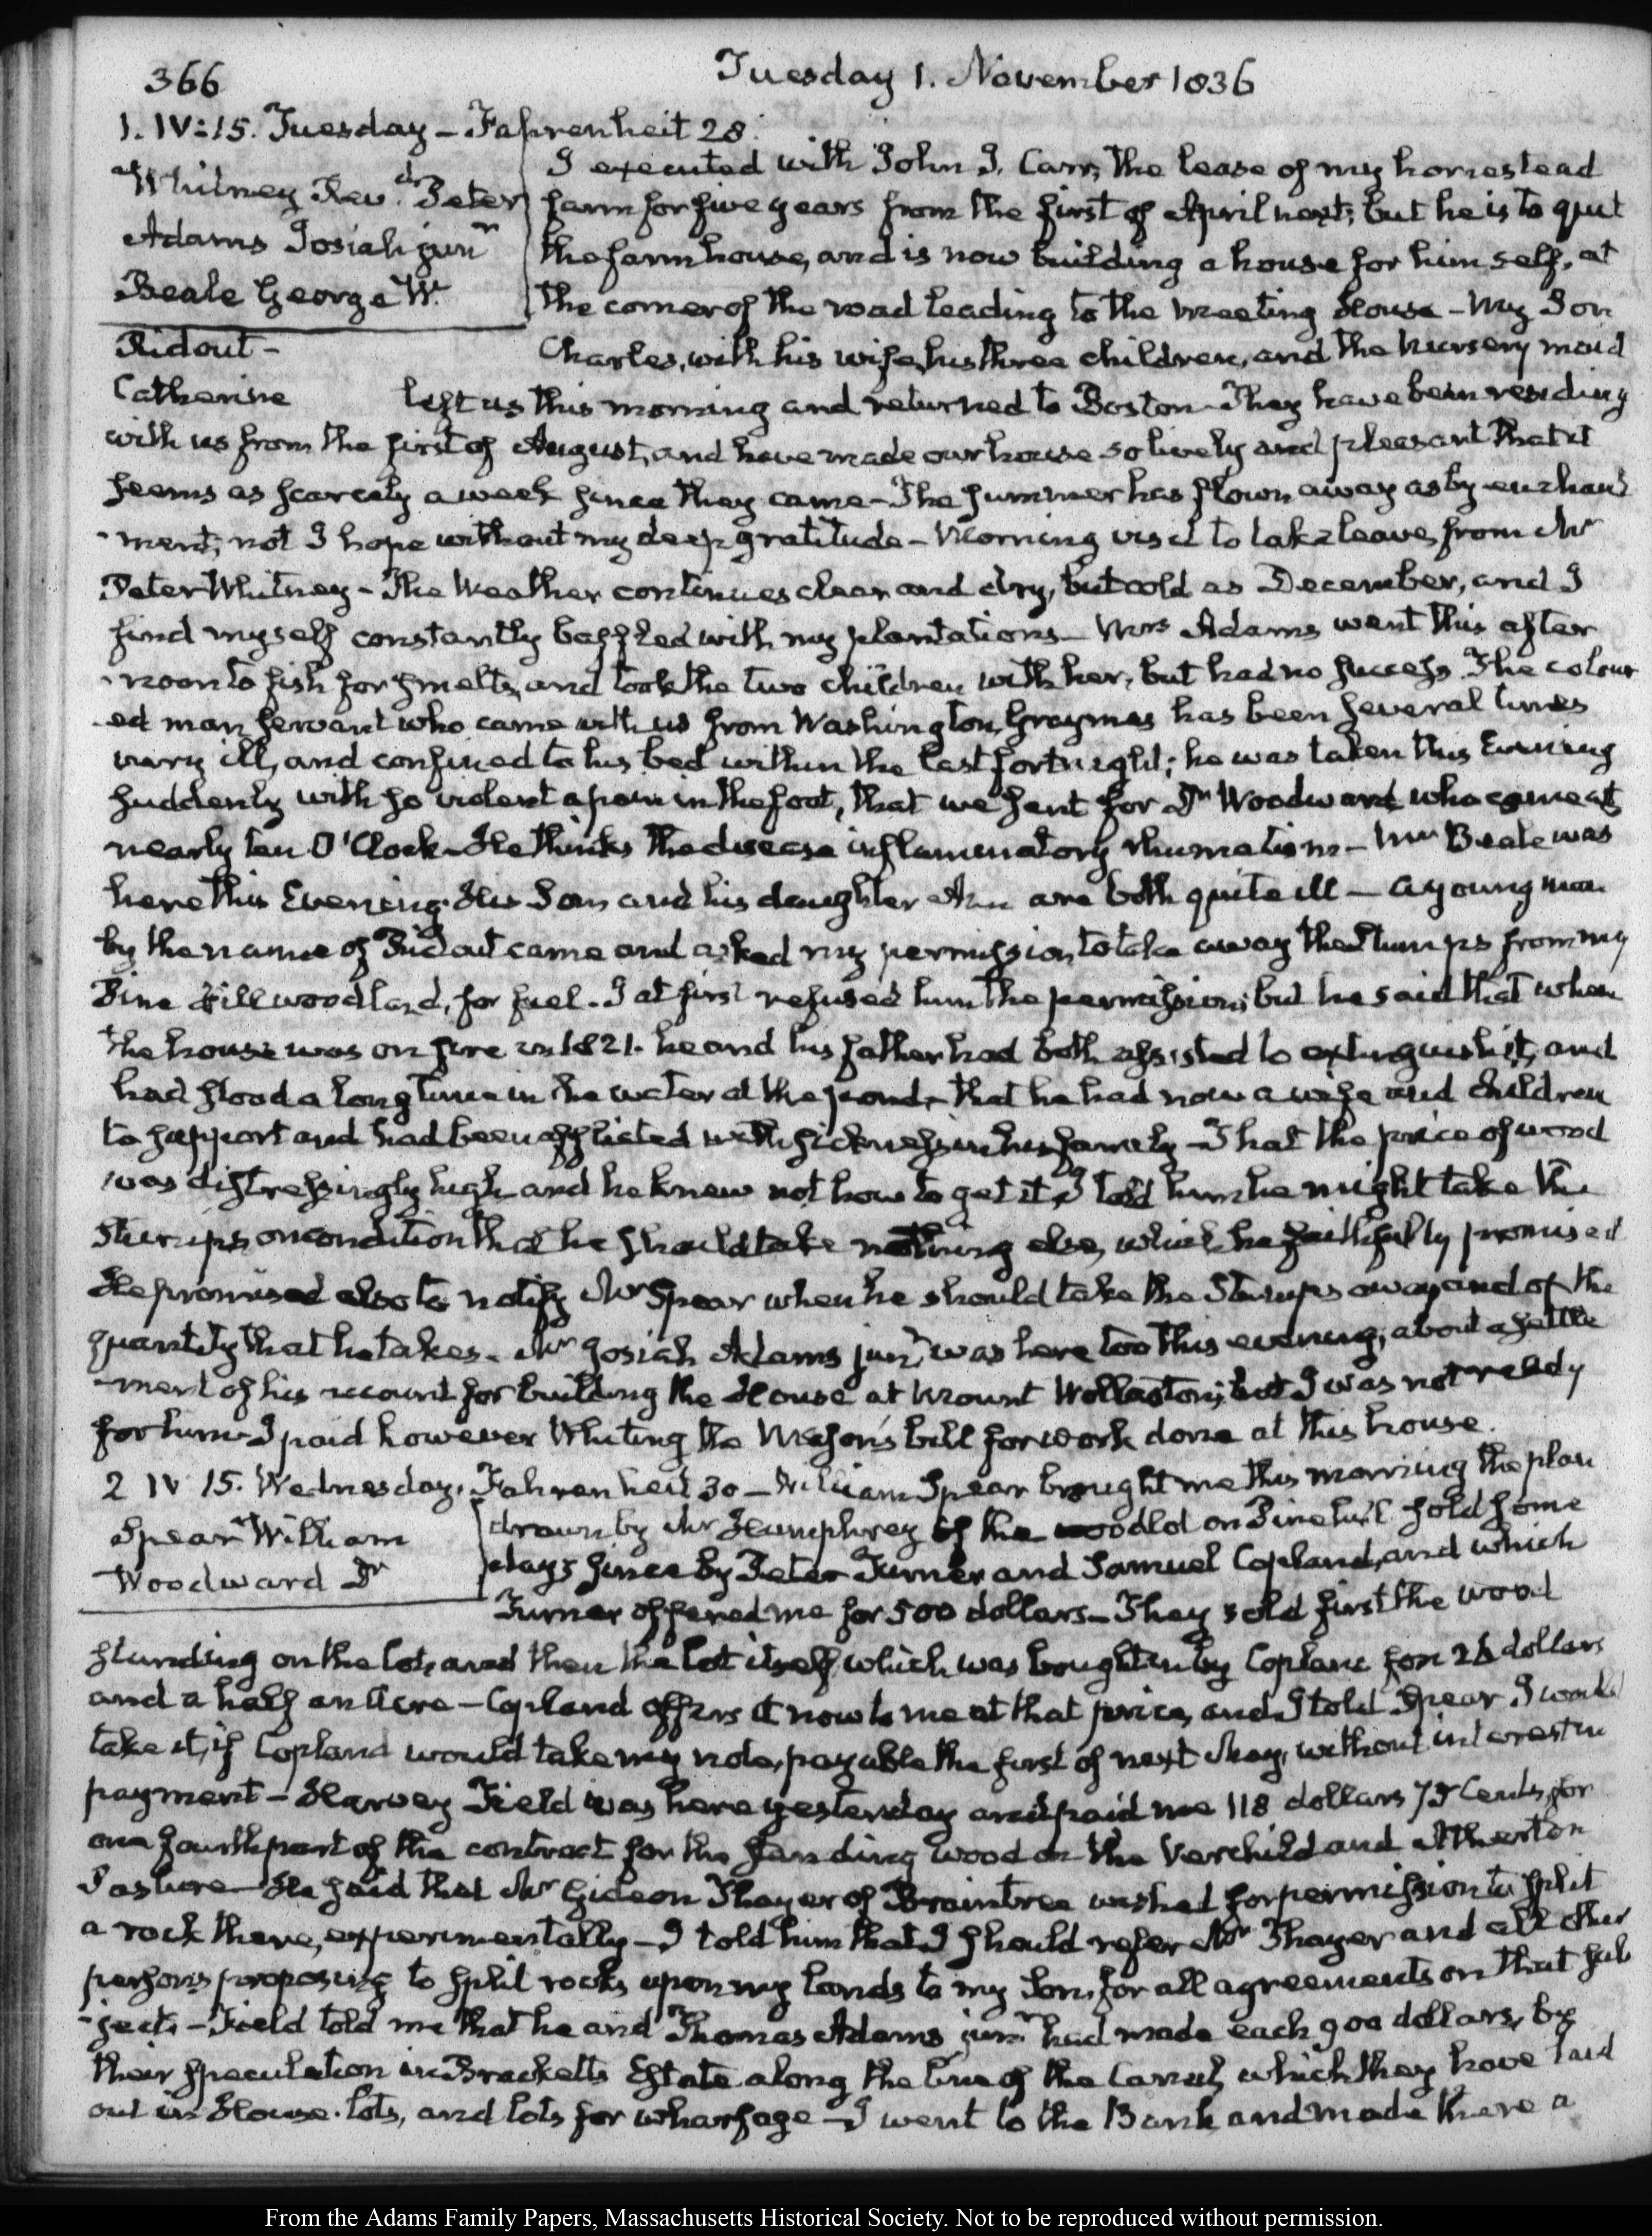 366
Tuesday 1. November 1836
1. IV:15. Tuesday – Fahrenheit 28.
Whitney Revd. Peter
Adams Josiah junr
Beale George W.
Ridout –
Catherine
I executed with John J. Carr, the lease of my homestead
farm for five years from the first of April next; but he is to quit
the farm house, and is now building a house for himself, at
the corner of the road leading to the Meeting House – My Son
Charles, with his wife, his three children, and the nursery maid
left us this morning and returned to Boston – They have been residing
with us from the first of August, and have made our house so lively and pleasant that it
seems as scarcely a week since they came – The Summer has flown away as by enchant
-ment, not I hope without my deep gratitude – Morning visit to take leave, from Mr
Peter Whitney – The Weather continues clear and dry, but cold as December, and I
find myself constantly baffled with my plantations – Mrs Adams went this after
-noon to fish for smelts, and took the two children with her, but had no success. The colour
-ed man servant who came with us from Washington, has been several times
very ill, and confined to his bed within the last fortnight; he was taken this Evening
suddenly with so violent a pain in the foot, that we sent for Dr Woodward who came at
nearly ten O'Clock – He thinks the disease inflammatory rhumatism – Mr Beale was
here this Evening. His Son and his daughter Ann are both quite ill – a young man
by the name of Ridout came and asked my permission to take away the stumps from my
Pine Hill woodland, for fuel. I at first refused him the permission; but he said that when
the house was on fire in 1821. he and his father had both assisted to extinguish it, and
had stood a long time in the water at the pond – that he had now a wife and children
to support and had been afflicted with sickness in his family – That the price of wood
was distressingly high and he knew not how to get it, I told him he might take the
stumps, on condition that he should take nothing else, which he faithfully promised
He promised also to notify Mr Spear when he should take the Stumps away and of the
quantity that he takes. Mr Josiah Adams junr was here too this evening, about a settle
-ment of his account for building the House at Mount Wollaston; but I was not ready
for him – I paid however Whiting the Mason's bill for work done at this house.
2 IV 15. Wednesday. Fahrenheit 30 – William Spear brought me this morning the plan
Spear William
Woodward Dr
drawn by Mr Humphrey of the woodlot on Pine hill sold some
days since by Peter Turner and Samuel Copland, and which
Turner offered me for 500 dollars – They sold first the wood
standing on the lot, and then the lot itself which was bought in by Copland for 26 dollars
and a half an Acre – Copland offers it now to me at that price, and I told Spear I would
take it, if Copland would take my note, payable the first of next May, without interest in
payment – Harvey Field was here yesterday and paid me 118 dollars 75 Cents, for
one fourth part of the contract for the standing wood on the Verchild and Atherton
Pasture – He said that Mr Gideon Thayer of Braintree wished for permission to split
a rock there, experimentally – I told him that I should refer Mr Thayer and all other
persons proposing to split rocks upon my lands to my Son, for all agreements on that sub
-ject. – Field told me that he and Thomas Adams junr had made each 900 dollars, by
their speculation in Bracketts Estate along the line of the Canal, which they have laid
out in House-lots, and lots for wharfage – I went to the Bank and made there a
From the Adams Family Papers, Massachusetts Historical Society. Not to be reproduced without permission.